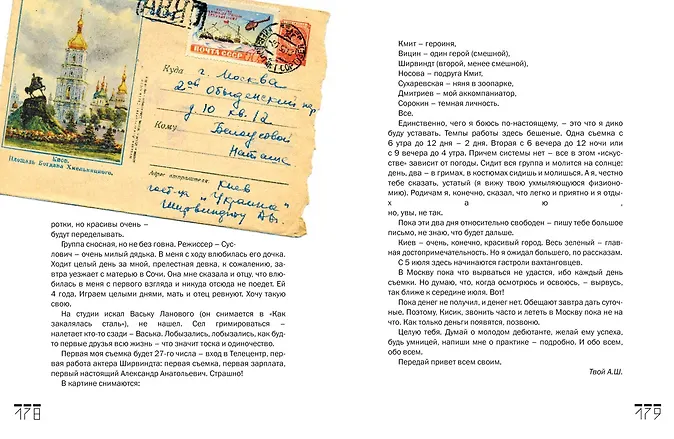 АВИА
ПОЧТА СССР
Куда г. Москва
2ой Обыденский пер
д 10 кв. 12
Кому Белоусовой
Наташе
Адрес отправителя: Киев
гост-ца "Украина"
Ширвиндту А.
Киев.
Площадь Богдана Хмельницкого.
ротки, но красивы очень –
будут переделывать.
Группа сносная, но не без говна. Режиссер – Сус-
лович – очень милый дядька. В меня с ходу влюбилась его дочка.
Ходит целый день за мной, прелестная девка, к сожалению, зав-
тра уезжает с матерью в Сочи. Она мне сказала и отцу, что влю-
билась в меня с первого взгляда и никуда отсюда не поедет. Ей
4 года. Играем целыми днями, мать и отец ревнуют. Хочу такую
свою.
На студии искал Ваську Ланового (он снимается в «Как
закалялась сталь»), не нашел. Сел гримироваться –
налетает кто-то сзади – Васька. Лобызались, лобызались, как буд-
то первые друзья всю жизнь – что значит тоска и одиночество.
Первая моя съемка будет 27-го числа – вход в Телецентр, пер-
вая работа актера Ширвиндта: первая съемка, первая зарплата,
первый настоящий Александр Анатольевич. Страшно!
В картине снимаются:
178
Кмит – героиня,
Вицин – один герой (смешной),
Ширвиндт (второй, менее смешной),
Носова – подруга Кмит,
Сухаревская – няня в зоопарке,
Дмитриев – мой аккомпаниатор,
Сорокин – темная личность.
Все.
Единственно, чего я боюсь по-настоящему, – это что я дико
буду уставать. Темпы работы здесь бешеные. Одна съемка с
6 утра до 12 дня – 2 дня. Вторая с 6 вечера до 12 ночи или
с 9 вечера до 4 утра. Причем системы нет – все в этом «искус-
стве» зависит от погоды. Сидит вся группа и молится на солнце:
день, два – в гримах, в костюмах сидишь и молишься. А я, чест-
но тебе сказать, усталый (я вижу твою ухмыляющуюся физионо-
мию). Родичам я, конечно, сказал, что легко и приятно и я отды-
х а ю ,
но, увы, не так.
Пока эти два дня относительно свободен – пишу тебе большое
письмо, не знаю, что будет дальше.
Киев – очень, конечно, красивый город. Весь зеленый – глав-
ная достопримечательность. Но я ожидал большего, по рассказам.
С 5 июля здесь начинаются гастроли вахтанговцев.
В Москву пока что вырваться не удастся, ибо каждый день
съемки. Но думаю, что, когда осмотрюсь и освоюсь, – вырвусь,
так ближе к середине июля. Вот!
Пока денег не получил, и денег нет. Обещают завтра дать суточ-
ные. Поэтому, Кисик, звонить часто и лететь в Москву пока не на
что. Как только деньги появятся, позвоню.
Целую тебя. Думай о молодом дебютанте, желай ему успеха,
будь умницей, напиши мне о практике – подробно. И обо всем,
обо всем.
Передай привет всем своим.
Твой А.Ш.
179